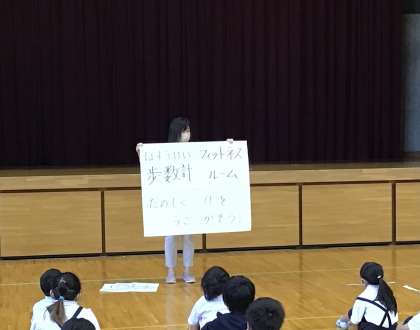 ほうけい フィットネス
歩数計 ルーム
たのしく 体を
うごかそう!